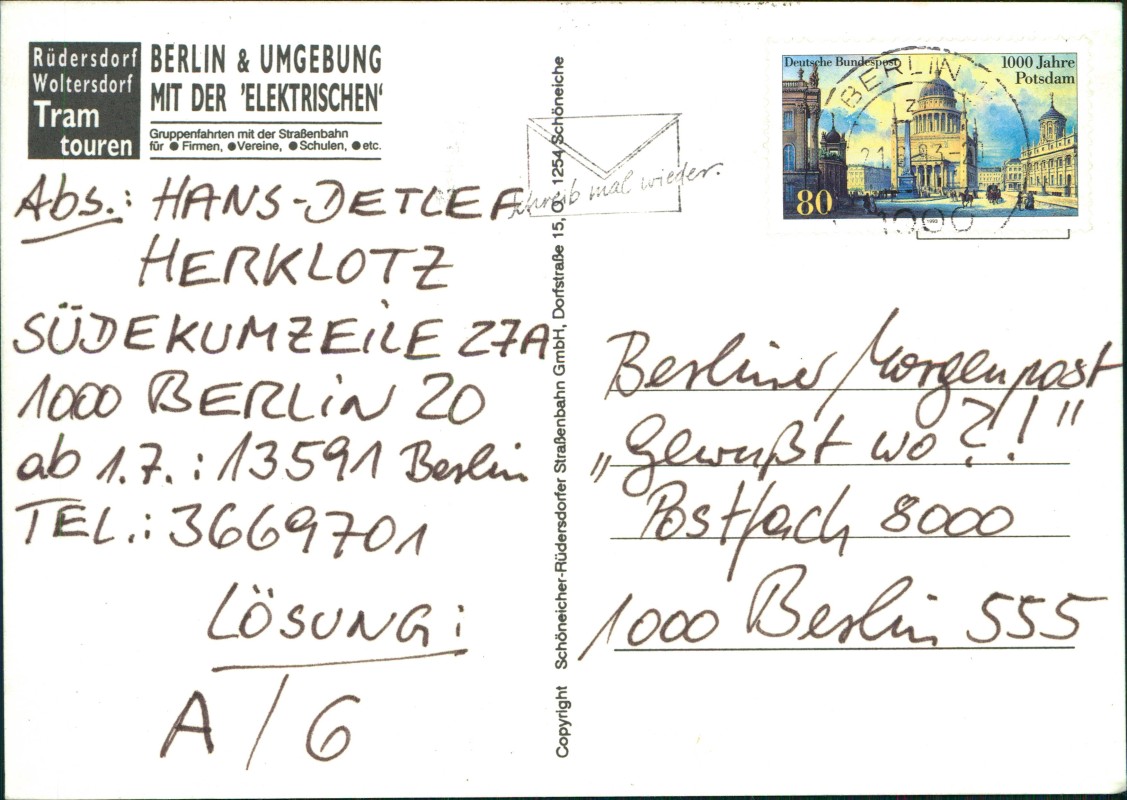 Rüdersdorf
Woltersdorf
Tram
touren
BERLIN & UMGEBUNG
MIT DER 'ELEKTRISCHEN'
Gruppenfahrten mit der Straßenbahn
für ● Firmen, ● Vereine, ● Schulen, ● etc.
Abs.: HANS-DETLEF
HERKLOTZ
SÜDEKUMZEILE 27A
1000 BERLIN 20
ab 1.7.: 13591 Berlin
TEL.: 3669701
LÖSUNG:
A/G
Copyright Schöneicher-Rüdersdorfer Straßenbahn GmbH, Dorfstraße 15, O, 1254 Schöneiche
Schreib mal wieder.
Deutsche Bundespost
1000 Jahre
Potsdam
80
1993
BERLIN
1000
Berliner Morgenpost
„Gewußt wo?!"
Postfach 8000
1000 Berlin 555